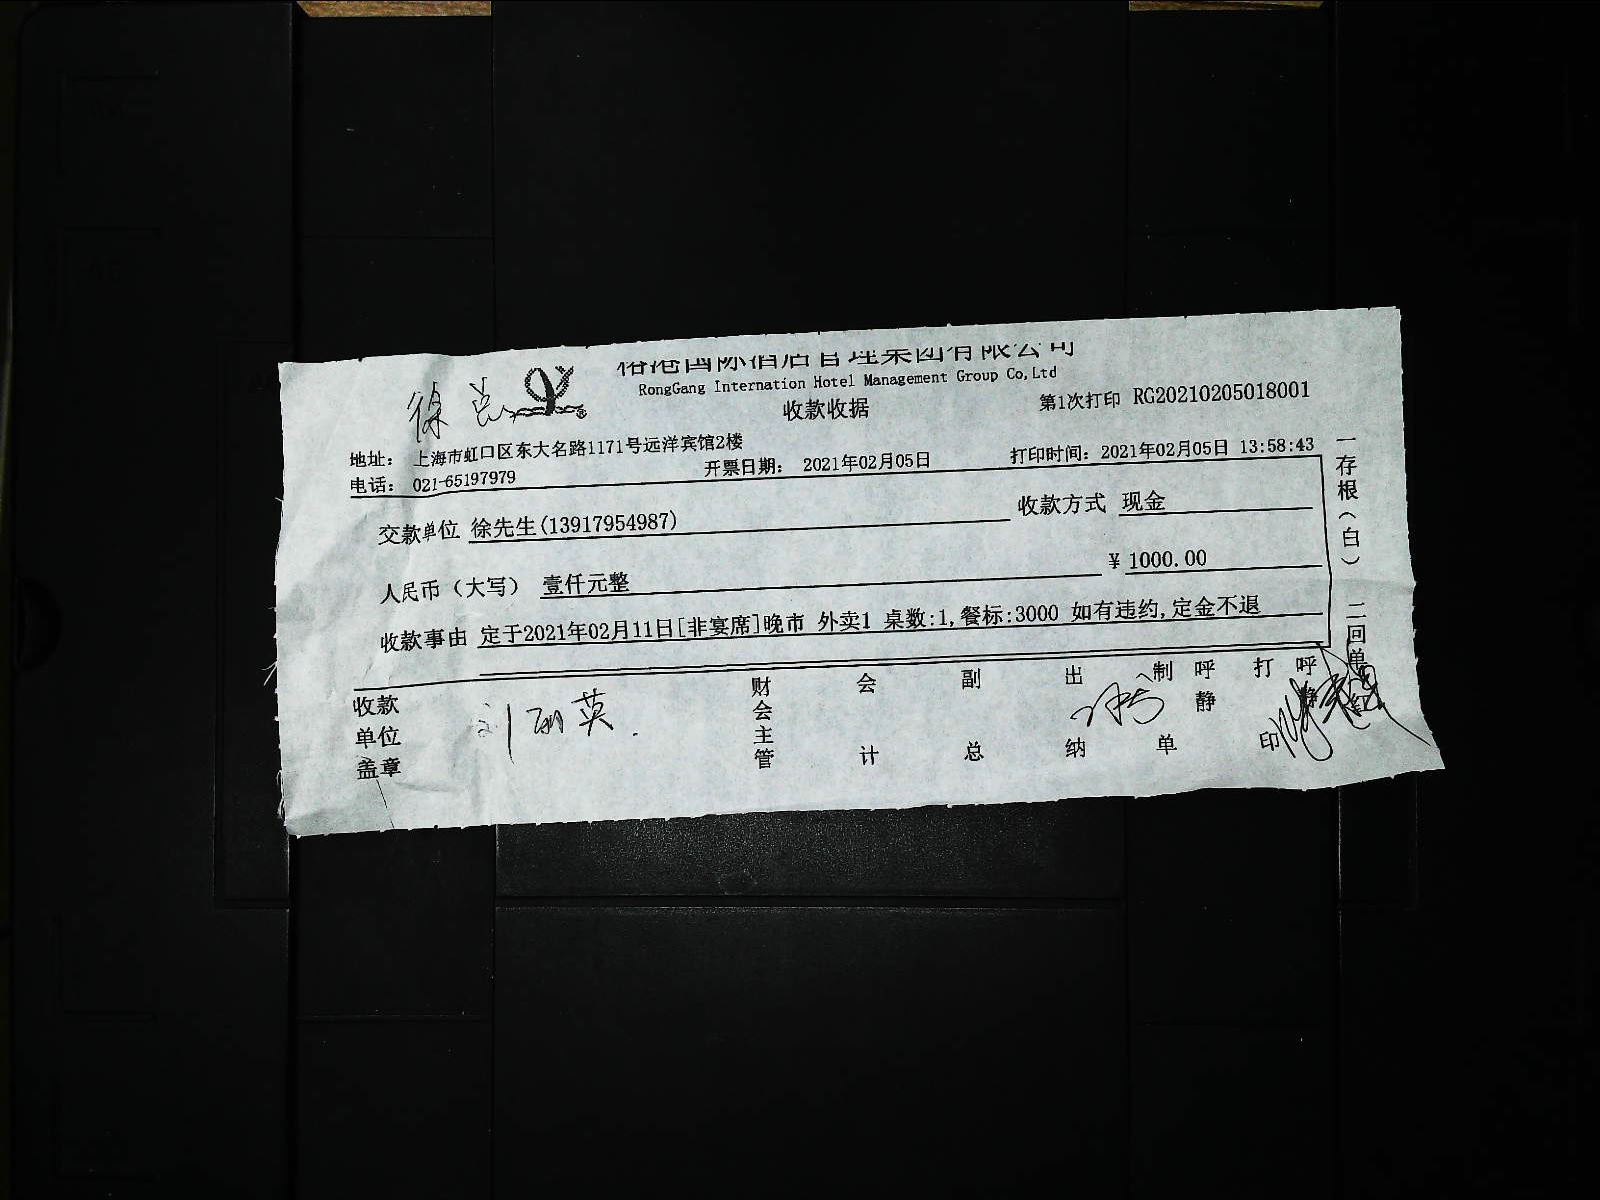 港国际酒店管理集团有限公司
RongGang Internation Hotel Management Group Co,Ltd
收款收据
第1次打印 RG20210205018001
徐
地址： 上海市虹口区东大名路1171号远洋宾馆2楼
电话： 021-65197979
开票日期： 2021年02月05日
打印时间：2021年02月05日 13:58:43
交款单位 徐先生(13917954987)
收款方式 现金
人民币（大写） 壹仟元整
¥ 1000.00
收款事由 定于2021年02月11日[非宴席]晚市 外卖1 桌数:1,餐标:3000 如有违约,定金不退
收款单位盖章
刘丽英
财会主管
会计
副总
出纳
制单
呼静
打印
呼静
一存根（白） 二回单（红）